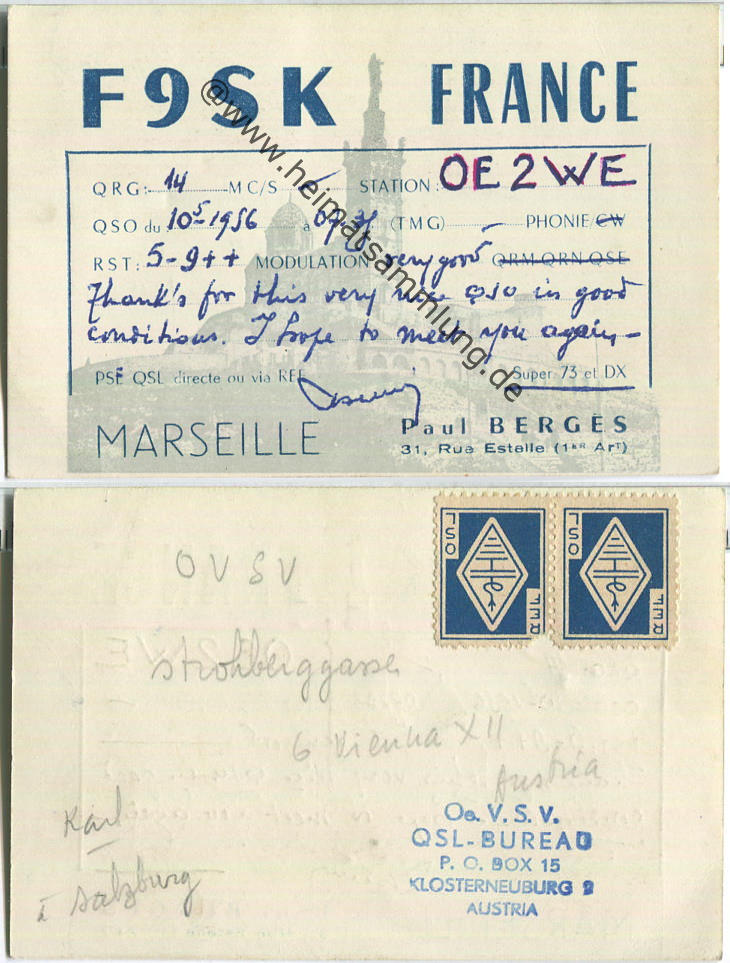 F9SK FRANCE
QRG: 14 MC/S STATION: OE2WE
QSO du 10-5-1956 à (TMG) PHONIE/CW
RST: 5-9++ MODULATION very good QRM-QRN-QSB
Thank's for this very nice QSO in good
conditions. I hope to meet you again —
PSE QSL directe ou via REF Super 73 et DX
MARSEILLE Paul BERGÈS
31, Rue Estelle (1ER ART)
@www.heimatsammlung.de
QSL QSL
REF REF
OVSV
Strohberggasse
6 Vienna XII
Austria
Karl
Salzburg
Oe. V. S. V.
QSL-BUREAU
P. O. BOX 15
KLOSTERNEUBURG 2
AUSTRIA